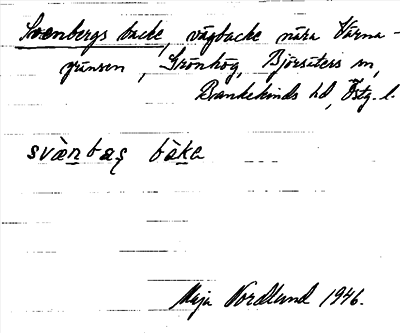 Svenbergs backe, vägbacke nära Värna-
gränsen, Grönhög, Björsäters sn,
Bankekinds hd, Östg. l.
svæ̀n bæș bàka
Maja Nordlund 1946.